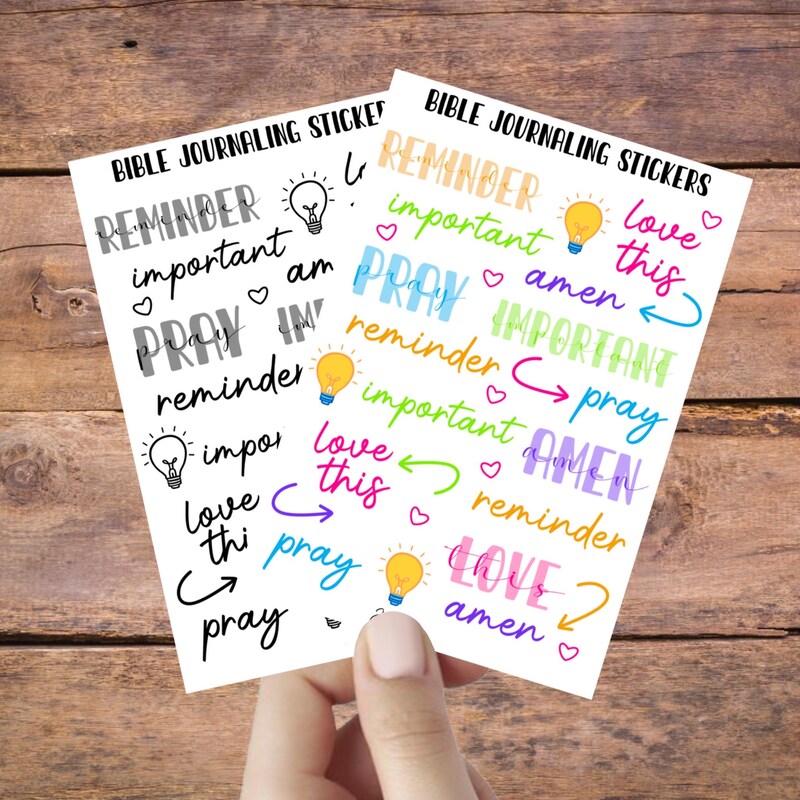 BIBLE JOURNALING STICKER
REMINDER
reminder
important
am
PRAY
pray
IM
reminder
impor
love
thi
pray
BIBLE JOURNALING STICKERS
REMINDER
reminder
important
love
this
PRAY
pray
amen
IMPORTANT
important
reminder
pray
important
love
this
AMEN
amen
reminder
pray
LOVE
this
amen